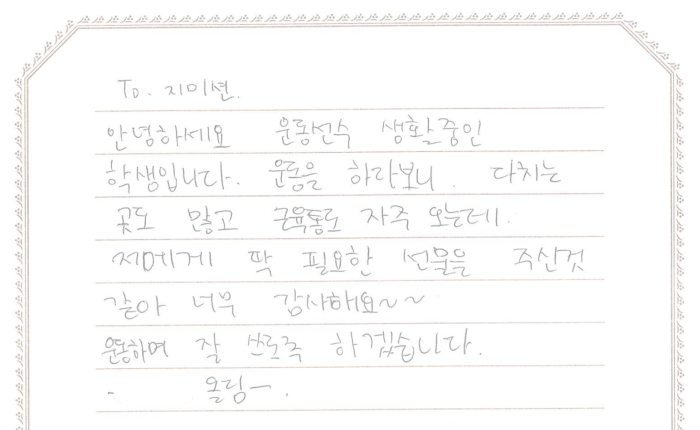 To. 지미션.
안녕하세요 운동선수 생활중인
학생입니다. 운동을 하라보니. 다치는
곳도 많고 근육통도 자주 오는데.
저에게게 딱 필요한 선물을 주신것
같아 너무 감사해요~~
운동하며 잘 쓰로죽 하겠습니다.
- 올림ㅡ.